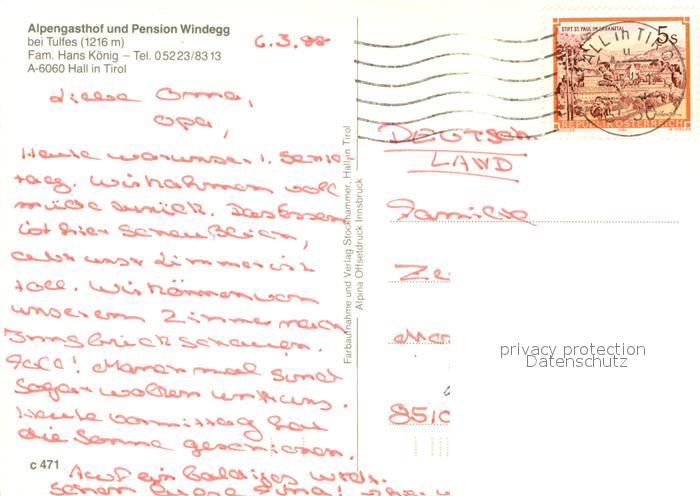 Alpengasthof und Pension Windegg
bei Tulfes (1216 m)
Fam. Hans König – Tel. 05223/8313
A-6060 Hall in Tirol
6.3.88
Liebe Oma,
Opa,
Heute war unser 1. Schi-
tag. Wir kamen voll
müde zurück. Das Essen
ist hier scheußlich,
aber unser Zimmer ist
toll. Wir können von
unserem Zimmer nach
Innsbruck schauen.
Toll! Manchmal sind
sogar Wolken unter uns.
Heute Vormittag hat
die Sonne geschienen.
Auf ein baldiges Wieder-
sehen eure
c 471
Farbaufnahme und Verlag Stockhammer, Hall in Tirol
Alpina Offsetdruck Innsbruck
STIFT ST. PAUL IM LAVANTTAL
5s
REPUBLIK ÖSTERREICH
HALL in TIROL
DEUTSCH
LAND
Familie
8510
privacy protection
Datenschutz